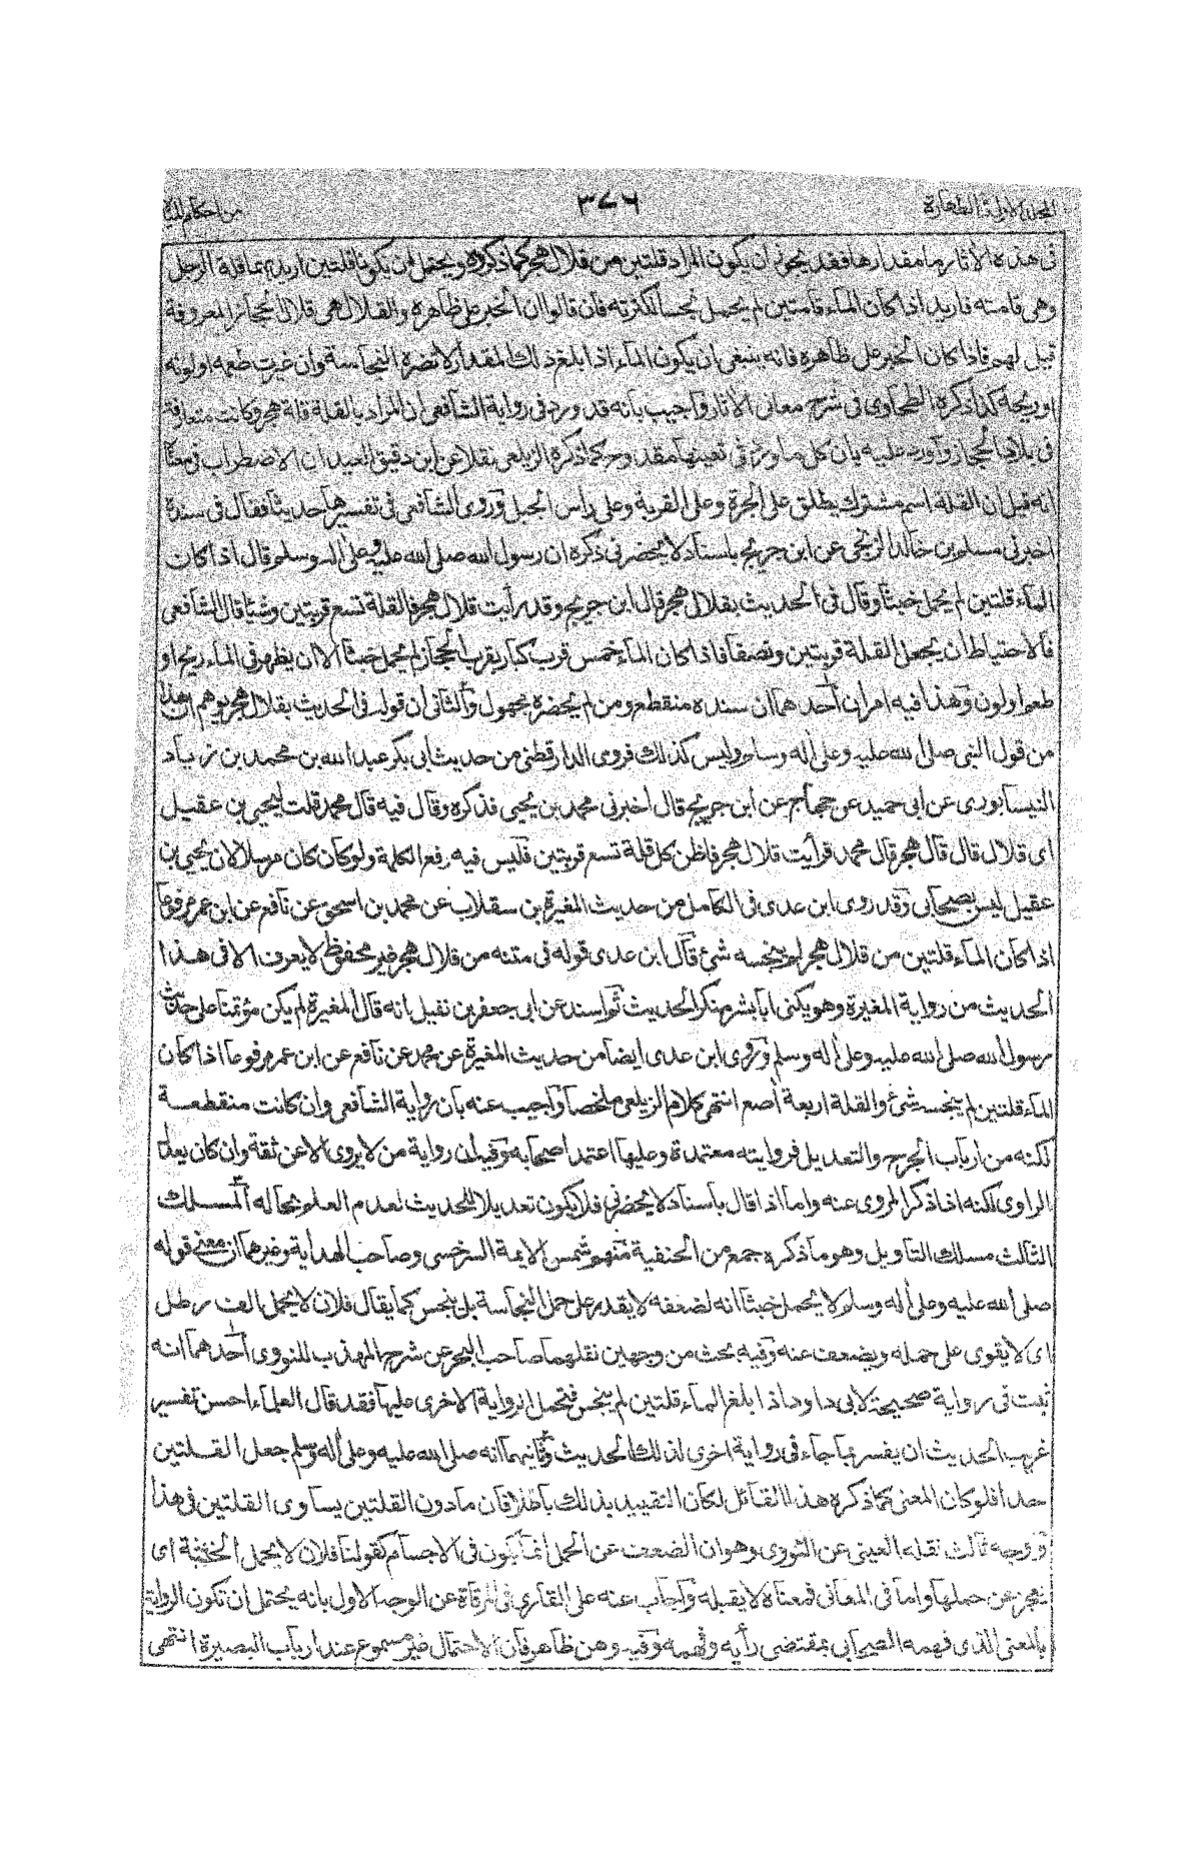 المجلد الاول فى الطهارة ٣٧٦ من احكام المياه
فى هذه الاثار ما مقدارها فقد يجوز ان يكون المراد قلتين من قلال هجر كما ذكرتم ويحتمل ان يكونا قلتين اريد بهما قلة الرجل
وهى قامته فاريد اذا كان الماء قامتين لم يحمل نجسا لكثرته فان قالوا ان الخبر على ظاهره والقلال هى قلال الحجاز المعروفة
قيل لهم فاذا كان الخبر على ظاهره فانه ينبغى ان يكون الماء اذا بلغ ذلك المقدار لا تضره النجاسة وان غيرت طعمه او لونه
او ريحه كذا ذكره الطحاوى فى شرح معانى الاثار واجيب بانه قد ورد فى رواية الشافعى ان المراد بالقلة قلة هجر وكانت متعارفة
فى بلاد الحجاز واورد عليه بان كل ما ورد فى تعيينها مقدوح كما ذكره الزيلعى نقلا عن ابن دقيق العيد ان الاضطراب فى معناه
انه قيل ان القلة اسم مشترك يطلق على الجرة وعلى القربة وعلى رأس الجبل وروى الشافعى فى تفسيرها حديثا فقال فى سنده
اخبرنى مسلم بن خالد الزنجى عن ابن جريج باسناد لا يحضرنى ذكره ان رسول الله صلى الله عليه وعلى اله وسلم قال اذا كان
الماء قلتين لم يحمل خبثا وقال فى الحديث بقلال هجر قال ابن جريج وقد رأيت قلال هجر فالقلة تسع قربتين وشيئا قال الشافعى
فالاحتياط ان يجعل القلة قربتين ونصفا فاذا كان الماء خمس قرب كبار بقرب الحجاز لم يحمل خبثا الا ان يظهر فى الماء ريح او
طعم او لون وهذا فيه امران أحدهما ان سنده منقطع ومن لم يحضره مجهول والثانى ان قوله فى الحديث بقلال هجر يوهم ان هذا
من قول النبى صلى الله عليه وعلى اله وسلم وليس كذلك فروى الدارقطنى من حديث ابى بكر عبد الله بن محمد بن زياد
النيسابورى عن ابى حميد عن حجاج عن ابن جريج قال اخبرنى محمد بن يحيى فذكره وقال فيه قال محمد قلت ليحيى بن عقيل
اى قلال قال قلال هجر قال محمد فرأيت قلال هجر فاظن كل قلة تسع قربتين فليس فيه رفع الكلمة ولو كان كان مرسلا لان يحيى بن
عقيل ليس بصحابى وقد روى ابن عدى فى الكامل من حديث المغيرة بن سقلاب عن محمد بن اسحق عن نافع عن ابن عمر مرفوعا
اذا كان الماء قلتين من قلال هجر لم ينجسه شئ قال ابن عدى قوله فى متنه من قلال هجر غير محفوظ لا يعرف الا فى هذا
الحديث من رواية المغيرة وهو يكنى ابا بشر منكر الحديث ثم اسند عن ابى جعفر بن نفيل انه قال المغيرة لم يكن مؤتمنا على حديث
رسول الله صلى الله عليه وعلى اله وسلم وروى ابن عدى ايضا من حديث المغيرة عن محمد عن نافع عن ابن عمر مرفوعا اذا كان
الماء قلتين لم ينجسه شئ والقلة اربعة أصع انتهى كلام الزيلعى ملخصا وأجيب عنه بان رواية الشافعى وان كانت منقطعة
لكنه من ارباب الجرح والتعديل فروايته معتمدة وعليها اعتمد اصحابه وفيه ان رواية من لا يروى الا عن ثقة وان كان يعدل
الراوى لكنه اذا ذكر المروى عنه واما اذا قال باسناد لا يحضرنى فلا يكون تعديلا للحديث لعدم العلم بحاله المسلك
الثالث مسلك التاويل وهو ما ذكره جمع من الحنفية منهم شمس الايمة السرخسى وصاحب الهداية وغيرهما ان معنى قوله
صلى الله عليه وعلى اله وسلم لا يحمل خبثا انه لضعفه لا يقدر على حمل النجاسة بل ينجس كما يقال فلان لا يحمل الف رطل
اى لا يقوى على حمله ويضعف عنه وفيه بحث من وجهين نقلهما صاحب البحر عن شرح المهذب للنووى أحدهما انه
ثبت فى رواية صحيحة لابى داود اذا بلغ الماء قلتين لم ينجس فتحمل الرواية الاخرى عليها فقد قال العلماء احسن تفسير
غريب الحديث ان يفسر بما جاء فى رواية اخرى لذلك الحديث وثانيهما انه صلى الله عليه وعلى اله وسلم جعل القلتين
حدا فلو كان المعنى كما ذكره هذا القائل لكان التقييد بذلك باطلا فان ما دون القلتين يساوى القلتين فى هذا
ووجه ثالث نقله العينى عن النووى وهو ان الضعف عن الحمل انما يكون فى الاجسام كقولنا فلان لا يحمل الخشبة اى
يعجز عن حملها واما فى المعانى فمعناه لا يقبله وأجاب عنه على القارى فى المرقاة عن الوجه الاول بانه يحتمل ان تكون الرواية
بالمعنى الذى فهمه الصحابى بمقتضى رأيه وفهمه وفيه وهن ظاهر فان الاحتمال غير مسموع عند ارباب البصيرة انتهى